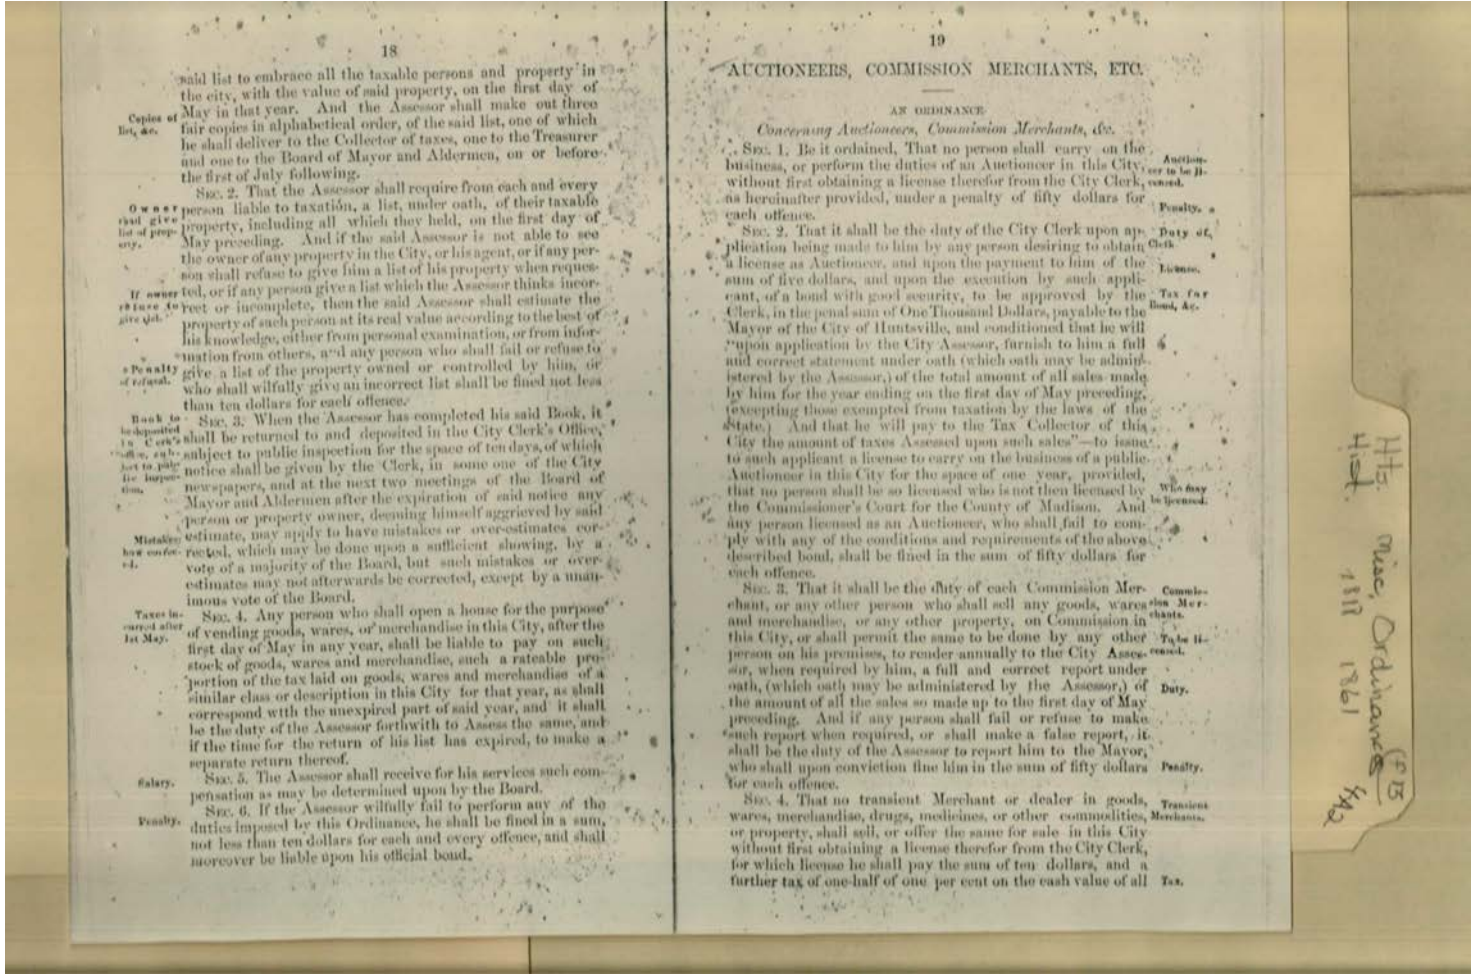 18
said list to embrace all the taxable persons and property in
the city, with the value of said property, on the first day of
May in that year. And the Assessor shall make out three
Copies of
list, &c.
fair copies in alphabetical order, of the said list, one of which
he shall deliver to the Collector of taxes, one to the Treasurer
and one to the Board of Mayor and Aldermen, on or before
the first of July following.
SEC. 2. That the Assessor shall require from each and every
Owner
person liable to taxation, a list, under oath, of their taxable
give
list of prop-
erty.
property, including all which they held, on the first day of
May preceding. And if the said Assessor is not able to see
the owner of any property in the City, or his agent, or if any per-
son shall refuse to give him a list of his property when reques-
If owner
refuse to
give list.
ted, or if any person give a list which the Assessor thinks incor-
rect or incomplete, then the said Assessor shall estimate the
property of such person at its real value according to the best of
his knowledge, either from personal examination, or from infor-
mation from others, and any person who shall fail or refuse to
Penalty
of refusal.
give a list of the property owned or controlled by him, or
who shall wilfully give an incorrect list shall be fined not less
than ten dollars for each offence.
Book to
be deposited
in Cerk's
office, sub-
ject to pub-
lic inspec-
tion.
SEC. 3. When the Assessor has completed his said Book, it
shall be returned to and deposited in the City Clerk's Office,
subject to public inspection for the space of ten days, of which
notice shall be given by the Clerk, in some one of the City
newspapers, and at the next two meetings of the Board of
Mayor and Aldermen after the expiration of said notice any
person or property owner, deeming himself aggrieved by said
estimate, may apply to have mistakes or over-estimates cor-
Mistakes
how correc-
ed.
rected, which may be done upon a sufficient showing, by a
vote of a majority of the Board, but such mistakes or over-
estimates may not afterwards be corrected, except by a unan-
imous vote of the Board.
Taxes in-
curred after
1st May.
SEC. 4. Any person who shall open a house for the purpose
of vending goods, wares, or merchandise in this City, after the
first day of May in any year, shall be liable to pay on such
stock of goods, wares and merchandise, such a rateable pro-
portion of the tax laid on goods, wares and merchandise of a
similar class or description in this City for that year, as shall
correspond with the unexpired part of said year, and it shall
be the duty of the Assessor forthwith to Assess the same, and
if the time for the return of his list has expired, to make a
separate return thereof.
Salary.
SEC. 5. The Assessor shall receive for his services such com-
pensation as may be determined upon by the Board.
Penalty.
SEC. 6. If the Assessor wilfully fail to perform any of the
duties imposed by this Ordinance, he shall be fined in a sum,
not less than ten dollars for each and every offence, and shall
moreover be liable upon his official bond.
19
AUCTIONEERS, COMMISSION MERCHANTS, ETC.
AN ORDINANCE
Concerning Auctioneers, Commission Merchants, &c.
SEC. 1. Be it ordained, That no person shall carry on the
business, or perform the duties of an Auctioneer in this City,
without first obtaining a license therefor from the City Clerk,
as hereinafter provided, under a penalty of fifty dollars for
each offence.
Auction-
eer to be li-
censed.
Penalty.
SEC. 2. That it shall be the duty of the City Clerk upon ap-
plication being made to him by any person desiring to obtain
a license as Auctioneer, and upon the payment to him of the
sum of five dollars, and upon the execution by such appli-
cant, of a bond with good security, to be approved by the
Clerk, in the penal sum of One Thousand Dollars, payable to the
Mayor of the City of Huntsville, and conditioned that he will
"upon application by the City Assessor, furnish to him a full
and correct statement under oath (which oath may be admin-
istered by the Assessor,) of the total amount of all sales made
by him for the year ending on the first day of May preceding,
(excepting those exempted from taxation by the laws of the
State.) And that he will pay to the Tax Collector of this
City the amount of taxes Assessed upon such sales"—to issue
to such applicant a license to carry on the business of a public
Auctioneer in this City for the space of one year, provided,
that no person shall be so licensed who is not then licensed by
the Commissioner's Court for the County of Madison. And
any person licensed as an Auctioneer, who shall fail to com-
ply with any of the conditions and requirements of the above
described bond, shall be fined in the sum of fifty dollars for
each offence.
Duty of
Clerk
License.
Tax for
Bond, &c.
Who may
be licensed.
SEC. 3. That it shall be the duty of each Commission Mer-
chant, or any other person who shall sell any goods, wares
and merchandise, or any other property, on Commission in
this City, or shall permit the same to be done by any other
person on his premises, to render annually to the City Asses-
sor, when required by him, a full and correct report under
oath, (which oath may be administered by the Assessor,) of
the amount of all the sales so made up to the first day of May
preceding. And if any person shall fail or refuse to make
such report when required, or shall make a false report, it
shall be the duty of the Assessor to report him to the Mayor,
who shall upon conviction fine him in the sum of fifty dollars
for each offence.
Commis-
sion Mer-
chants.
To be li-
censed.
Duty.
Penalty.
SEC. 4. That no transient Merchant or dealer in goods,
wares, merchandise, drugs, medicines, or other commodities,
or property, shall sell, or offer the same for sale in this City
without first obtaining a license therefor from the City Clerk,
for which license he shall pay the sum of ten dollars, and a
further tax of one-half of one per cent on the cash value of all
Transient
Merchants.
Tax.
Misc. Ordinances
Hist. 1861